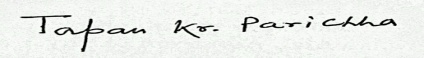 Tapan Kr. Parichha